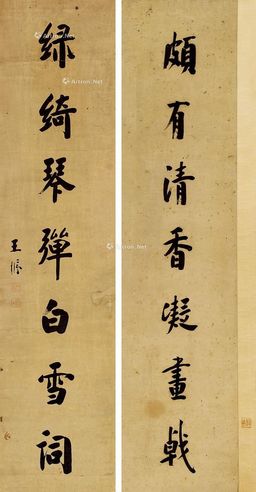 頗有清香凝畫戟
綠綺琴彈白雪詞
王
Artron.Net
Artron.Net
Artron.Net